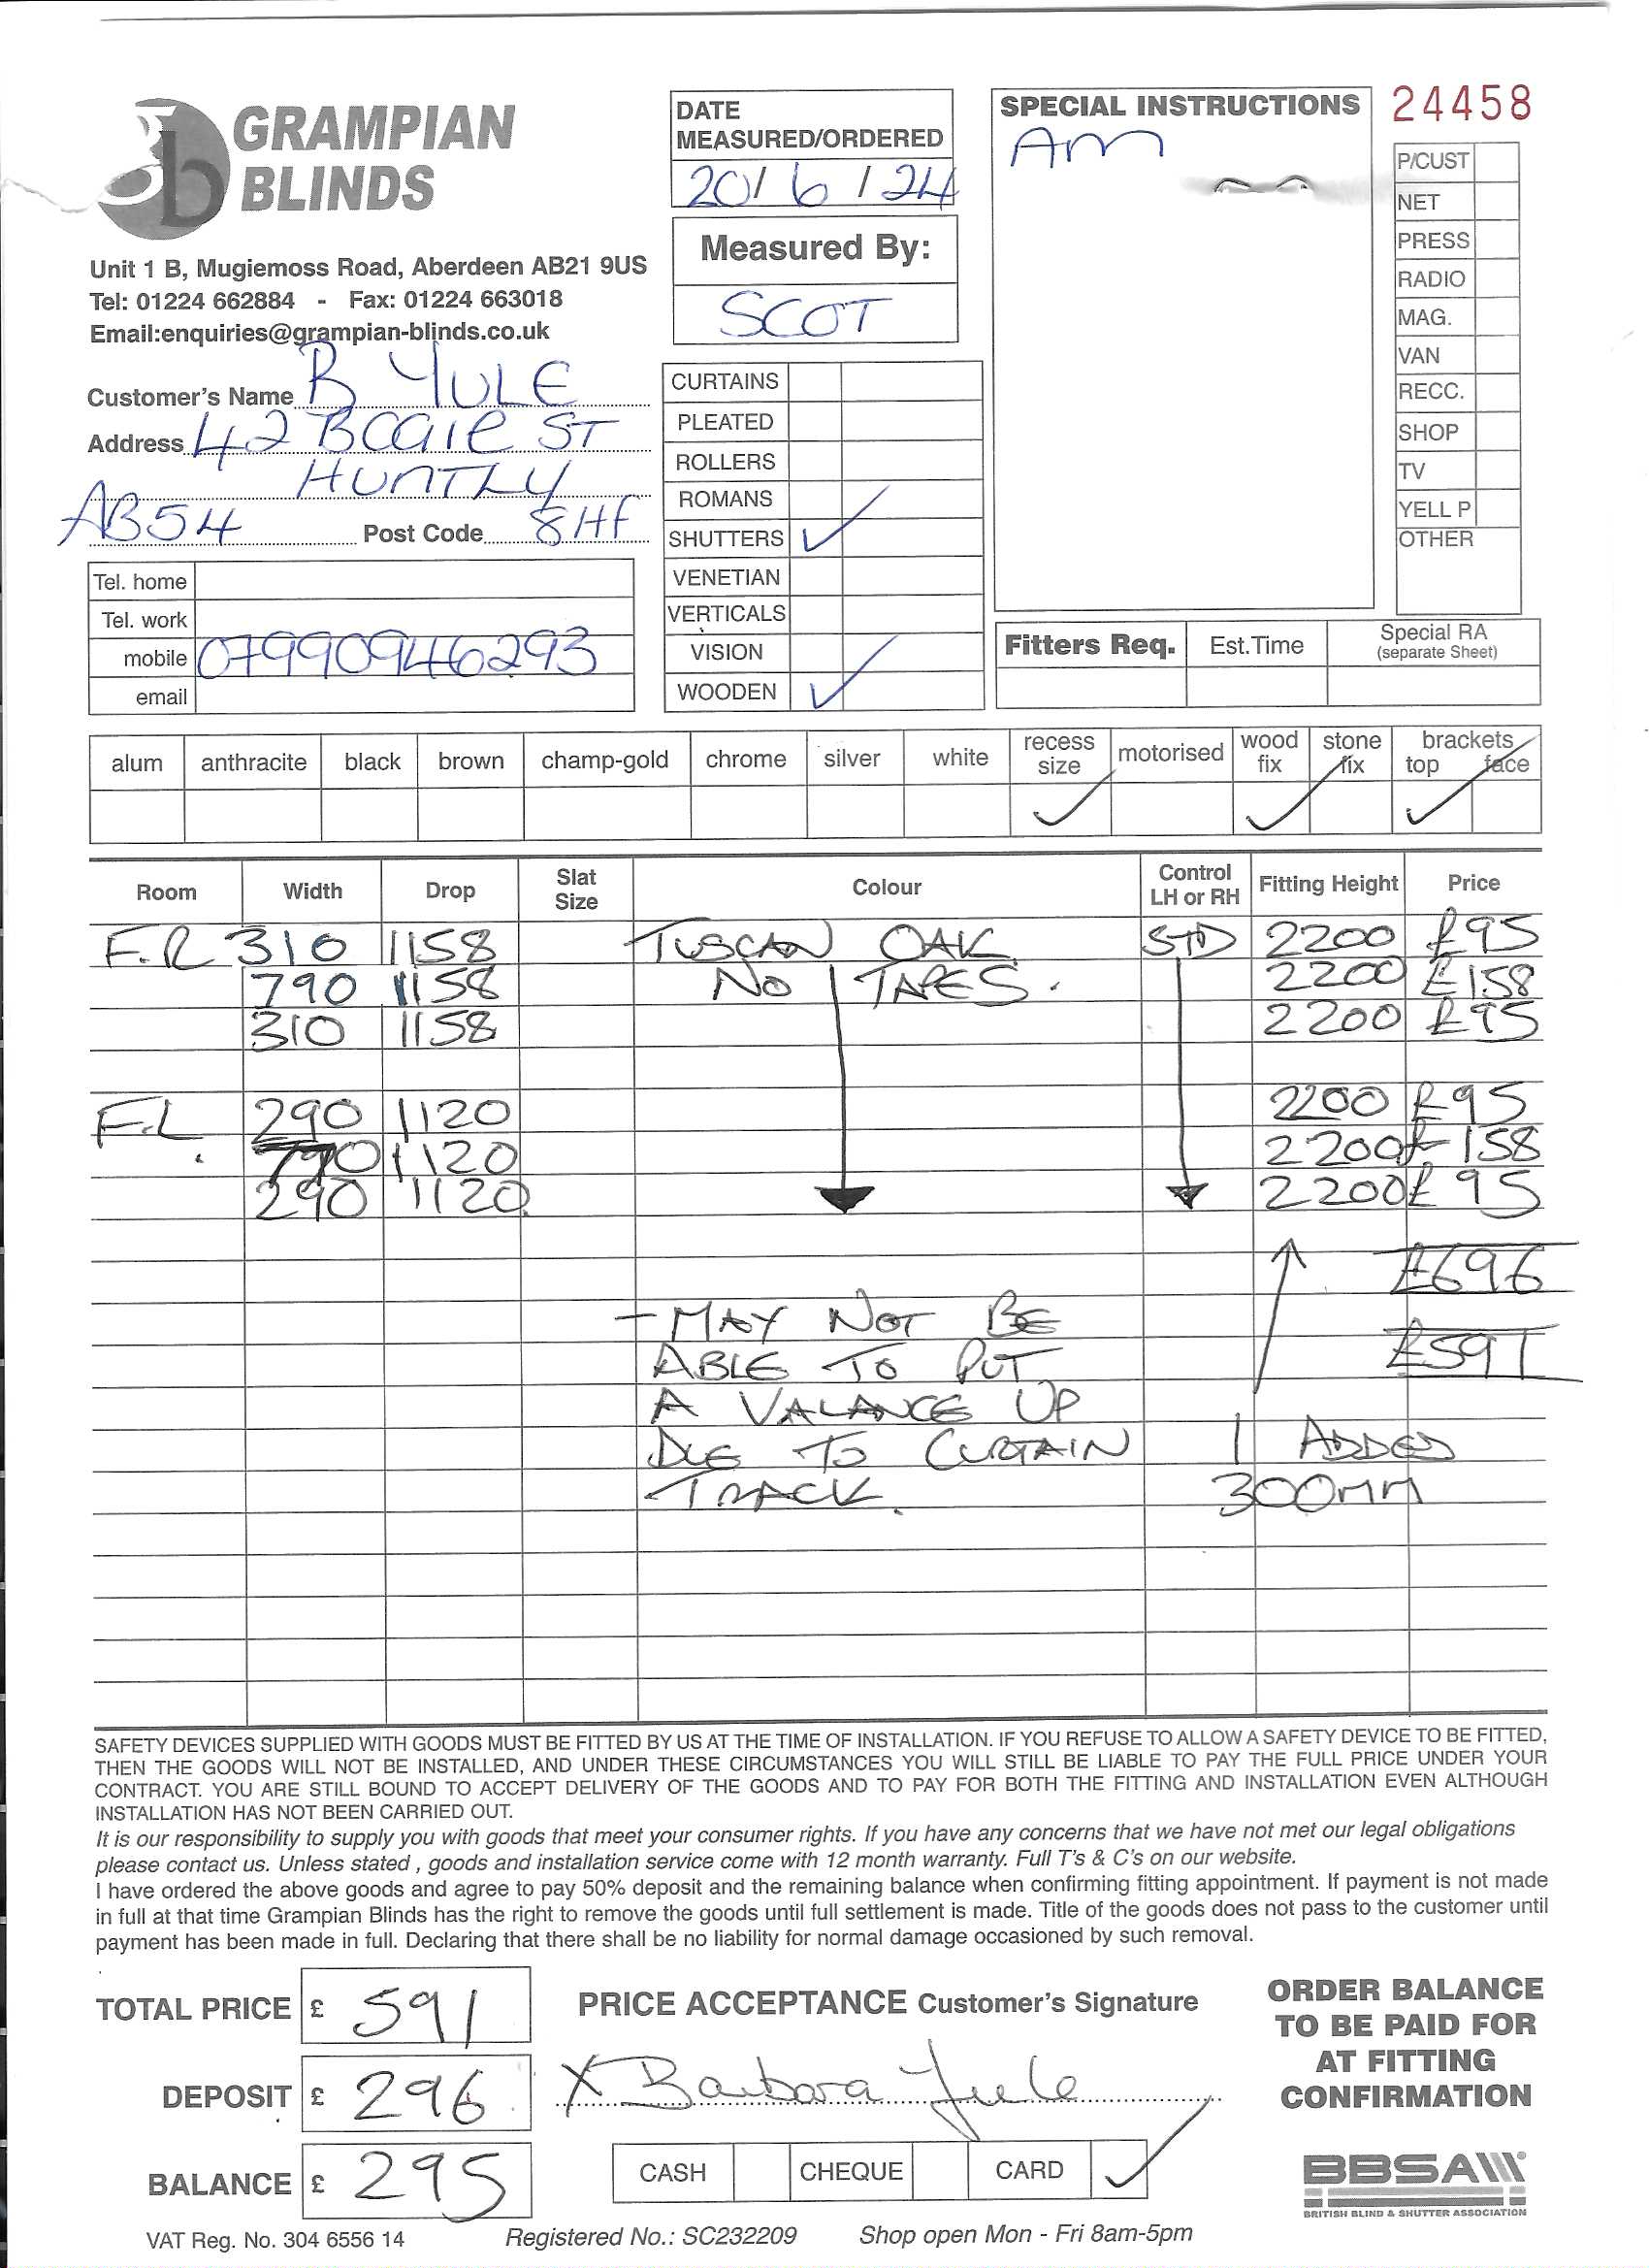 GRAMPIAN
BLINDS
Unit 1 B, Mugiemoss Road, Aberdeen AB21 9US
Tel: 01224 662884 - Fax: 01224 663018
Email:enquiries@grampian-blinds.co.uk
Customer's Name B YULE
Address 42 BOGIE ST
HUNTLY
AB54 Post Code 8HF
Tel. home
Tel. work
mobile 07990946293
email
DATE
MEASURED/ORDERED
20/6/24
Measured By:
SCOT
CURTAINS
PLEATED
ROLLERS
ROMANS
SHUTTERS ✓
VENETIAN
VERTICALS
VISION
WOODEN ✓
SPECIAL INSTRUCTIONS
AM
24458
P/CUST
NET
PRESS
RADIO
MAG.
VAN
RECC.
SHOP
TV
YELL P
OTHER
Fitters Req. Est.Time Special RA
(separate Sheet)
alum anthracite black brown champ-gold chrome silver white recess size motorised wood fix stone fix brackets top face
✓ ✓ ✓
Room Width Drop Slat Size Colour Control LH or RH Fitting Height Price
F.R 310 1158 TUSCAN OAK STD 2200 £95
790 1158 NO TAPES. 2200 £158
310 1158 2200 £95
F.L 290 1120 2200 £95
790 1120 2200 £158
290 1120 2200 £95
£696
- MAY NOT BE
£591
ABLE TO PUT
A VALANCE UP
DUE TO CURTAIN ADDED
TRACK. 300mm
SAFETY DEVICES SUPPLIED WITH GOODS MUST BE FITTED BY US AT THE TIME OF INSTALLATION. IF YOU REFUSE TO ALLOW A SAFETY DEVICE TO BE FITTED,
THEN THE GOODS WILL NOT BE INSTALLED, AND UNDER THESE CIRCUMSTANCES YOU WILL STILL BE LIABLE TO PAY THE FULL PRICE UNDER YOUR
CONTRACT. YOU ARE STILL BOUND TO ACCEPT DELIVERY OF THE GOODS AND TO PAY FOR BOTH THE FITTING AND INSTALLATION EVEN ALTHOUGH
INSTALLATION HAS NOT BEEN CARRIED OUT.
It is our responsibility to supply you with goods that meet your consumer rights. If you have any concerns that we have not met our legal obligations
please contact us. Unless stated , goods and installation service come with 12 month warranty. Full T's & C's on our website.
I have ordered the above goods and agree to pay 50% deposit and the remaining balance when confirming fitting appointment. If payment is not made
in full at that time Grampian Blinds has the right to remove the goods until full settlement is made. Title of the goods does not pass to the customer until
payment has been made in full. Declaring that there shall be no liability for normal damage occasioned by such removal.
TOTAL PRICE £ 591
DEPOSIT £ 296
BALANCE £ 295
PRICE ACCEPTANCE Customer's Signature
X Barbara Yule
CASH CHEQUE CARD ✓
ORDER BALANCE
TO BE PAID FOR
AT FITTING
CONFIRMATION
BBSA
BRITISH BLIND & SHUTTER ASSOCIATION
VAT Reg. No. 304 6556 14 Registered No.: SC232209 Shop open Mon - Fri 8am-5pm